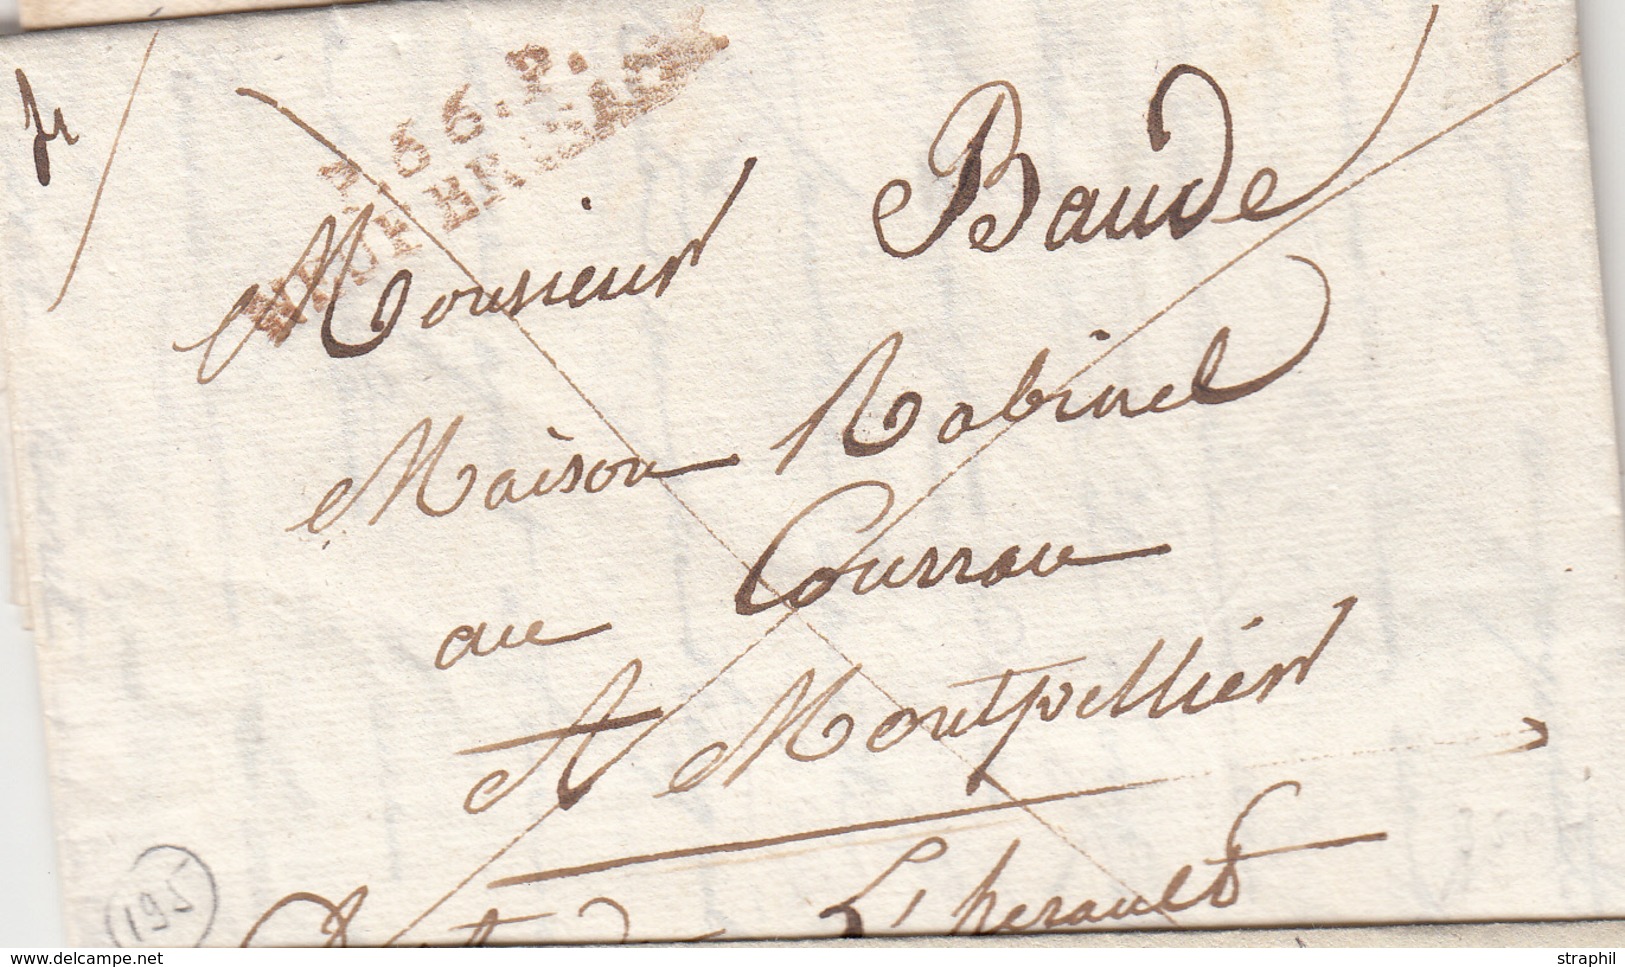 P.66.P.
Monsieur Baude
Maison Rabinel
au Courrau
A Montpellier
L'herault
195
delcampe.net
straphil